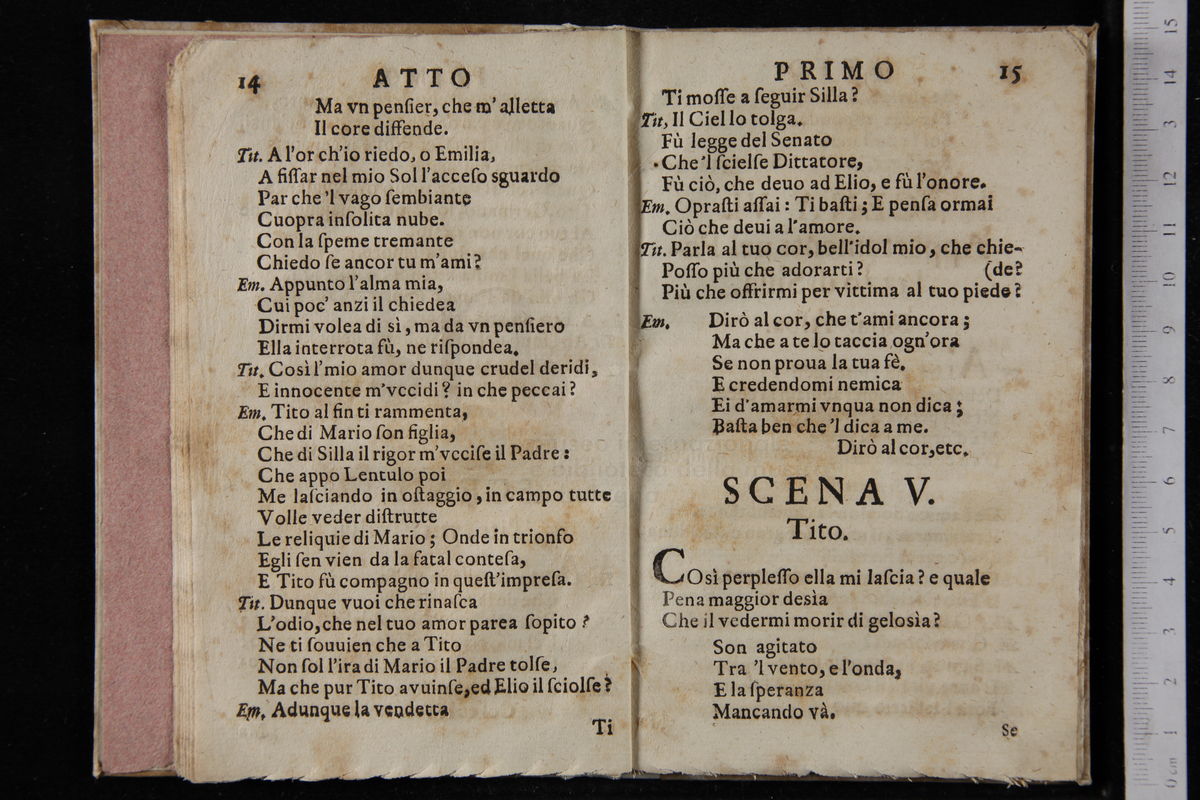 14 ATTO
Ma vn penſier, che m' alletta
Il core diffende.
Tit. A l'or ch'io riedo, o Emilia,
A fiſſar nel mio Sol l'acceſo sguardo
Par che 'l vago ſembiante
Cuopra inſolita nube.
Con la ſpeme tremante
Chiedo ſe ancor tu m'ami?
Em. Appunto l'alma mia,
Cui poc' anzi il chiedea
Dirmi volea di sì, ma da vn penſiero
Ella interrota fù, ne riſpondea.
Tit. Così l'mio amor dunque crudel deridi,
E innocente m'vccidi? in che peccai?
Em. Tito al fin ti rammenta,
Che di Mario ſon figlia,
Che di Silla il rigor m'vcciſe il Padre:
Che appo Lentulo poi
Me laſciando in oſtaggio, in campo tutte
Volle veder diſtrutte
Le reliquie di Mario; Onde in trionfo
Egli ſen vien da la fatal conteſa,
E Tito fù compagno in queſt'impreſa.
Tit. Dunque vuoi che rinaſca
L'odio, che nel tuo amor parea ſopito?
Ne ti ſouuien che a Tito
Non ſol l'ira di Mario il Padre tolſe,
Ma che pur Tito avuinſe, ed Elio il ſciolſe?
Em. Adunque la vendetta
Ti
PRIMO 15
Ti moſſe a ſeguir Silla?
Tit, Il Ciel lo tolga.
Fù legge del Senato
Che 'l ſcielſe Dittatore,
Fù ciò, che deuo ad Elio, e fù l'onore.
Em. Opraſti aſſai: Ti baſti; E penſa ormai
Ciò che deui a l'amore.
Tit. Parla al tuo cor, bell'idol mio, che chie-
Poſſo più che adorarti? (de?
Più che offrirmi per vittima al tuo piede?
Em. Dirò al cor, che t'ami ancora;
Ma che a te lo taccia ogn'ora
Se non proua la tua fè.
E credendomi nemica
Ei d'amarmi vnqua non dica;
Baſta ben che 'l dica a me.
Dirò al cor, etc.
SCENA V.
Tito.
COsì perpleſſo ella mi laſcia? e quale
Pena maggior desìa
Che il vedermi morir di gelosìa?
Son agitato
Tra 'l vento, e l'onda,
E la ſperanza
Mancando và.
Se
15
14
3
12
11
10
9
8
7
6
5
4
3
2
1
0 cm